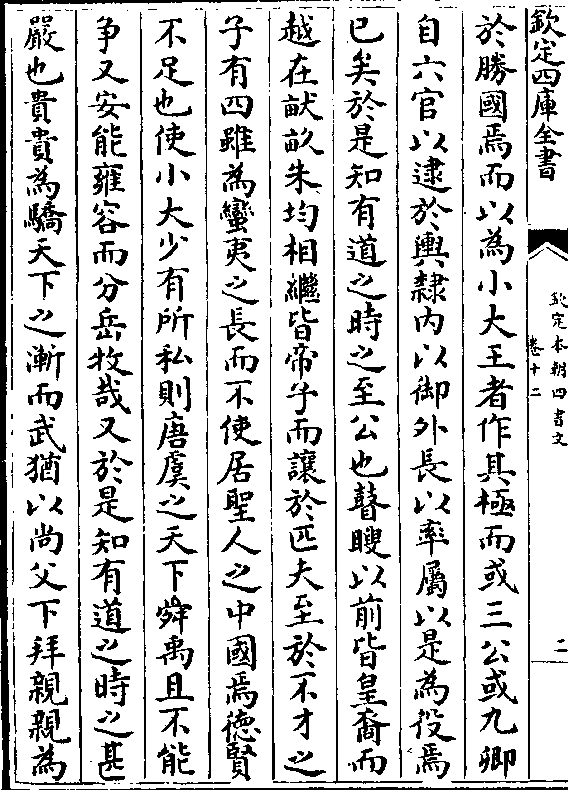 欽定四庫全書
欽定本朝四書文
卷十二
二
於勝國焉而以為小大王者作其極而或三公或九卿
自六官以逮於輿隸內以御外長以率屬以是為役焉
已矣於是知有道之時之至公也瞽瞍以前皆皇裔而
越在畎畝朱均相繼皆帝子而讓於匹夫至於不才之
子有四雖為蠻夷之長而不使居聖人之中國焉德賢
不足也使小大少有所私則唐虞之天下舜禹且不能
爭又安能雍容而分岳牧哉又於是知有道之時之甚
嚴也貴貴為驕天下之漸而武猶以尚父下拜親親為